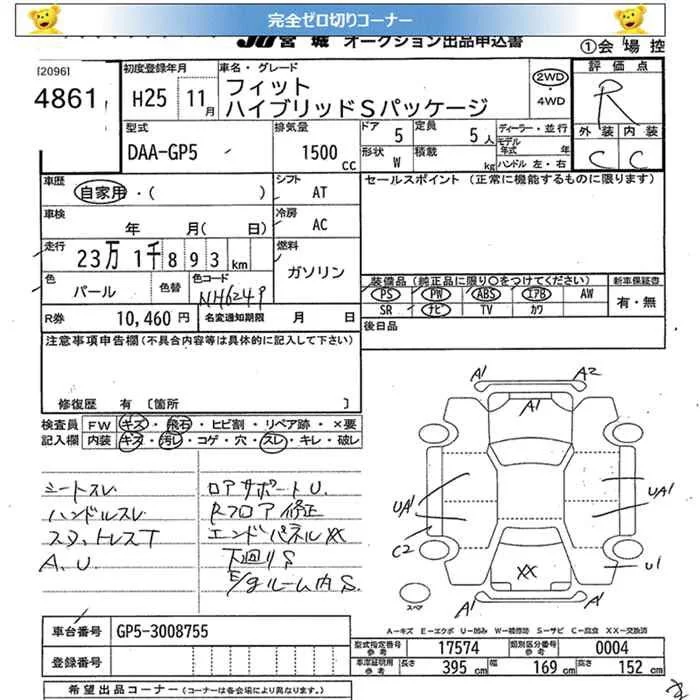 完全ゼロ切りコーナー
JU宮城 オークション出品申込書
①会場控
[2096]
4861
初度登録年月
H25 11月
車名・グレード
フィット
ハイブリッドSパッケージ
2WD
・4WD
評価点
R
外装 内装
C C
型式
DAA-GP5
排気量
1500cc
ドア 5
定員 5人
形状 W
積載 kg
ディーラー・並行
モデル年式 年
ハンドル 左・右
車歴
自家用・( )
シフト
AT
セールスポイント (正常に機能するものに限ります)
車検
年 月(日)
冷房
AC
走行
23万1千893km
燃料
ガソリン
色
パール
色替
色コード
NH624P
装備品(純正品に限り○をつけてください)
PS PW ABS エアB AW
SR ナビ TV カワ
新車保証書
有・無
R券 10,460円
名変通知期限 月 日
後日品
注意事項申告欄(不具合内容等は具体的に記入して下さい)
修復歴 有 〔箇所 〕
検査員記入欄
FW キズ・飛石・ヒビ割・リペア跡・×要
内装 キズ・汚レ・コゲ・穴・スレ・キレ・破レ
シートスレ
ハンドルスレ
スタットレスT
A、U
ロアサポートU.
Rフロア修正
エンドパネルXX
下廻りS
E/gルーム内S.
A1 A2
A1
UA1 UA1
C2
U1
XX
A1 A1
スペア
A-キズ E-エクボ U-凹み W-補修跡 S-サビ C-腐食 XX-交換済
車台番号 GP5-3008755
登録番号
型式指定番号参考 17574
類別区分番号参考 0004
車庫証明用参考 長さ 395cm 幅 169cm 高さ 152cm
希望出品コーナー (コーナーは各会場により異なります。)